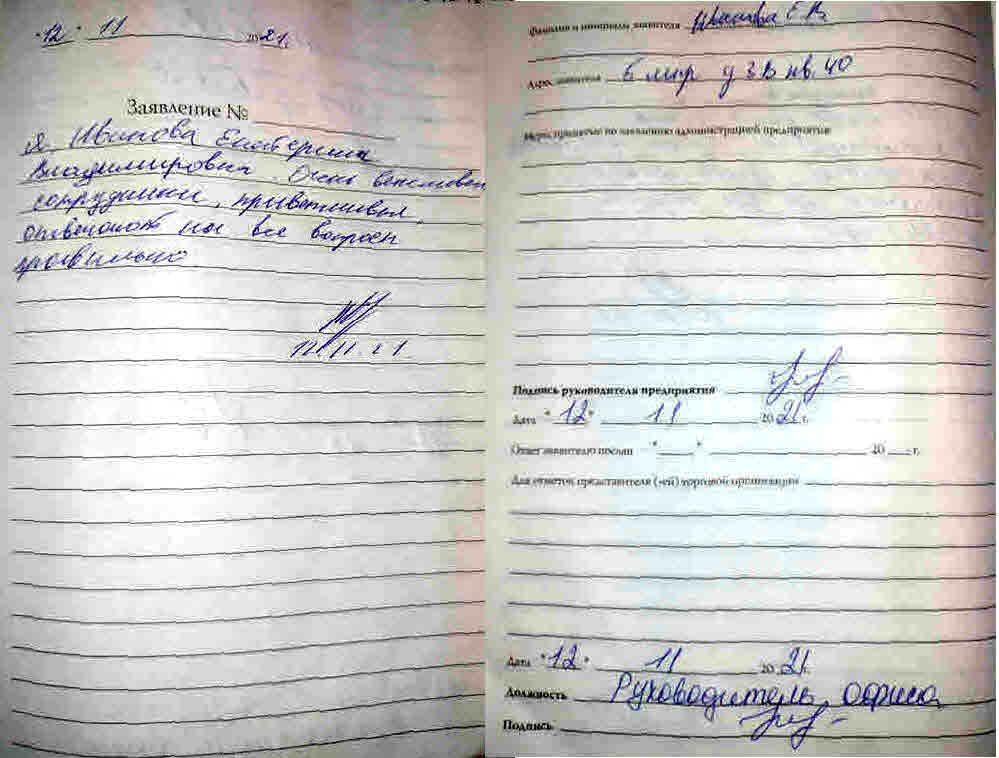 "12" 11 2021.
Заявление №
Я Иванова Екатерина
Владимировна. Очень вежливые
сотрудники, приветливые,
отвечают на все вопросы
правильно
12.11.21.
Фамилия и инициалы заявителя Иванова Е.В.
Адрес заявителя Б мир д 3В кв. 40
Меры, принятые по заявлению администрацией предприятия
Подпись руководителя предприятия
Дата "12" 11 2021 г.
Ответ заявителю послан " " 20 г.
Для отметок представителя (-ей) торговой организации
Дата "12" 11 2021.
Должность Руководитель офиса
Подпись